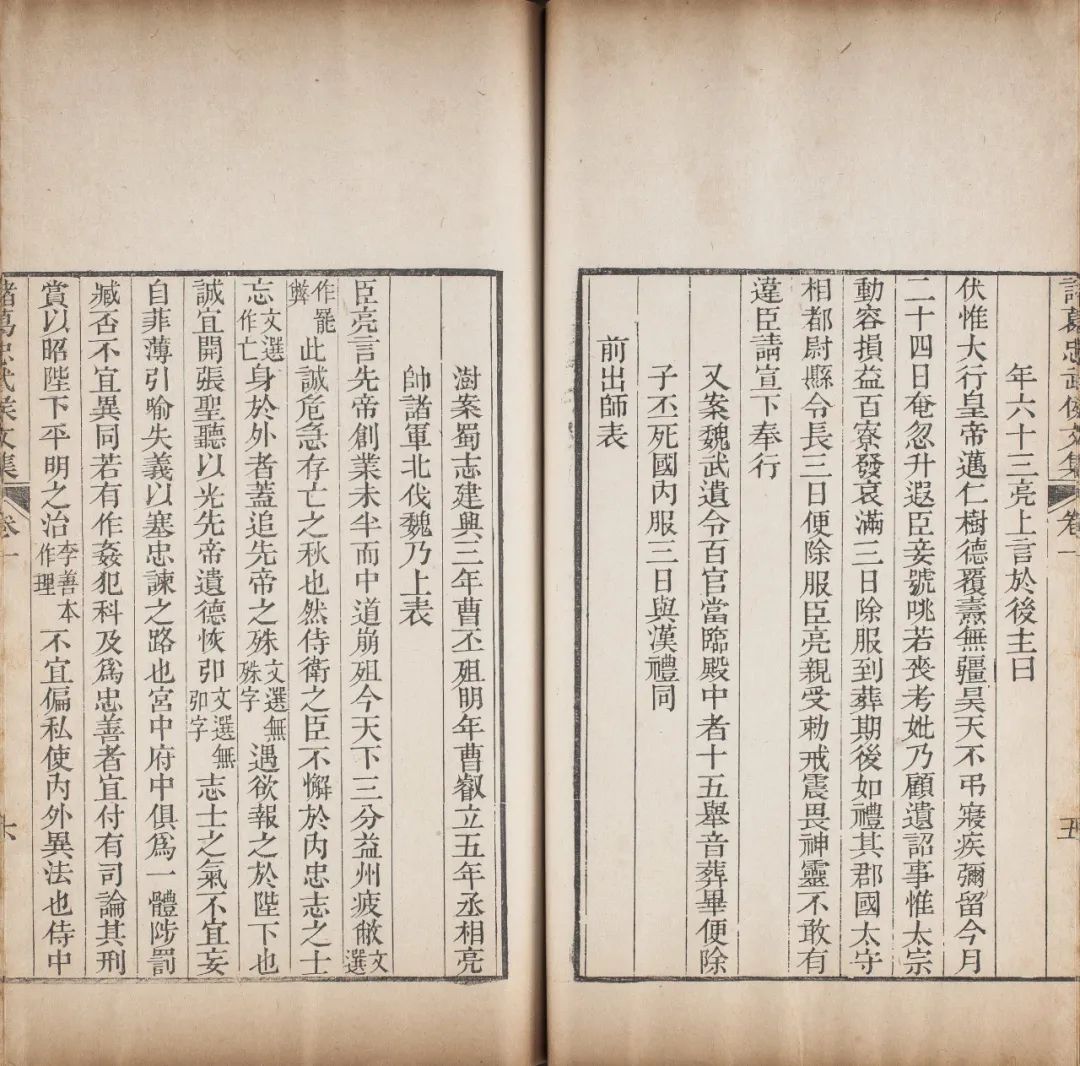 諸葛忠武侯文集 卷一 五
年六十三亮上言於後主曰
伏惟大行皇帝邁仁樹德覆燾無疆昊天不弔寢疾彌留今月
二十四日奄忽升遐臣妾號咷若喪考妣乃顧遺詔事惟太宗
動容損益百寮發哀滿三日除服到葬期後如禮其郡國太守
相都尉縣令長三日便除服臣亮親受勅戒震畏神靈不敢有
違臣請宣下奉行
又案魏武遺令百官當臨殿中者十五舉音葬畢便除
子丕死國內服三日與漢禮同
前出師表
澍案蜀志建興三年曹丕殂明年曹叡立五年丞相亮
帥諸軍北伐魏乃上表
臣亮言先帝創業未半而中道崩殂今天下三分益州疲敝文選
作罷弊此誠危急存亡之秋也然侍衛之臣不懈於內忠志之士
忘文選作亡身於外者蓋追先帝之殊文選無殊字遇欲報之於陛下也
誠宜開張聖聽以光先帝遺德恢卬文選無卬字志士之氣不宜妄
自菲薄引喻失義以塞忠諫之路也宮中府中俱爲一體陟罰
臧否不宜異同若有作姦犯科及爲忠善者宜付有司論其刑
賞以昭陛下平明之治李善本作理不宜偏私使內外異法也侍中
諸葛忠武侯文集 卷一 六